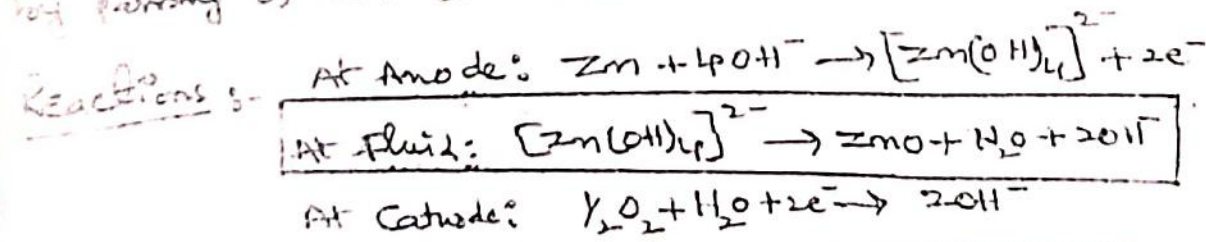 Reactions :-
At Anode: Zn + 4OH⁻ → [Zn(OH)₄]²⁻ + 2e⁻
At Fluid: [Zn(OH)₄]²⁻ → ZnO + H₂O + 2OH⁻
At Cathode: ½O₂ + H₂O + 2e⁻ → 2OH⁻